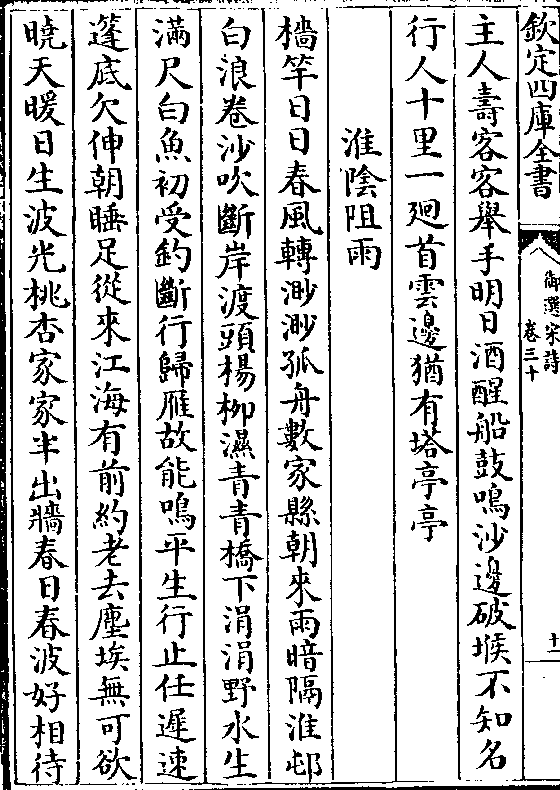 欽定四庫全書
御選宋詩
卷三十
十一
主人壽客客舉手明日酒醒船鼓鳴沙邊破堠不知名
行人十里一廻首雲邊猶有塔亭亭
淮陰阻雨
檣竿日日春風轉渺渺孤舟數家縣朝來雨暗隔淮邨
白浪卷沙吹斷岸渡頭楊柳濕青青橋下涓涓野水生
滿尺白魚初受釣斷行歸雁故能鳴平生行止任遲速
蓬底欠伸朝睡足從來江海有前約老去塵埃無可欲
曉天暖日生波光桃杏家家半出牆春日春波好相待